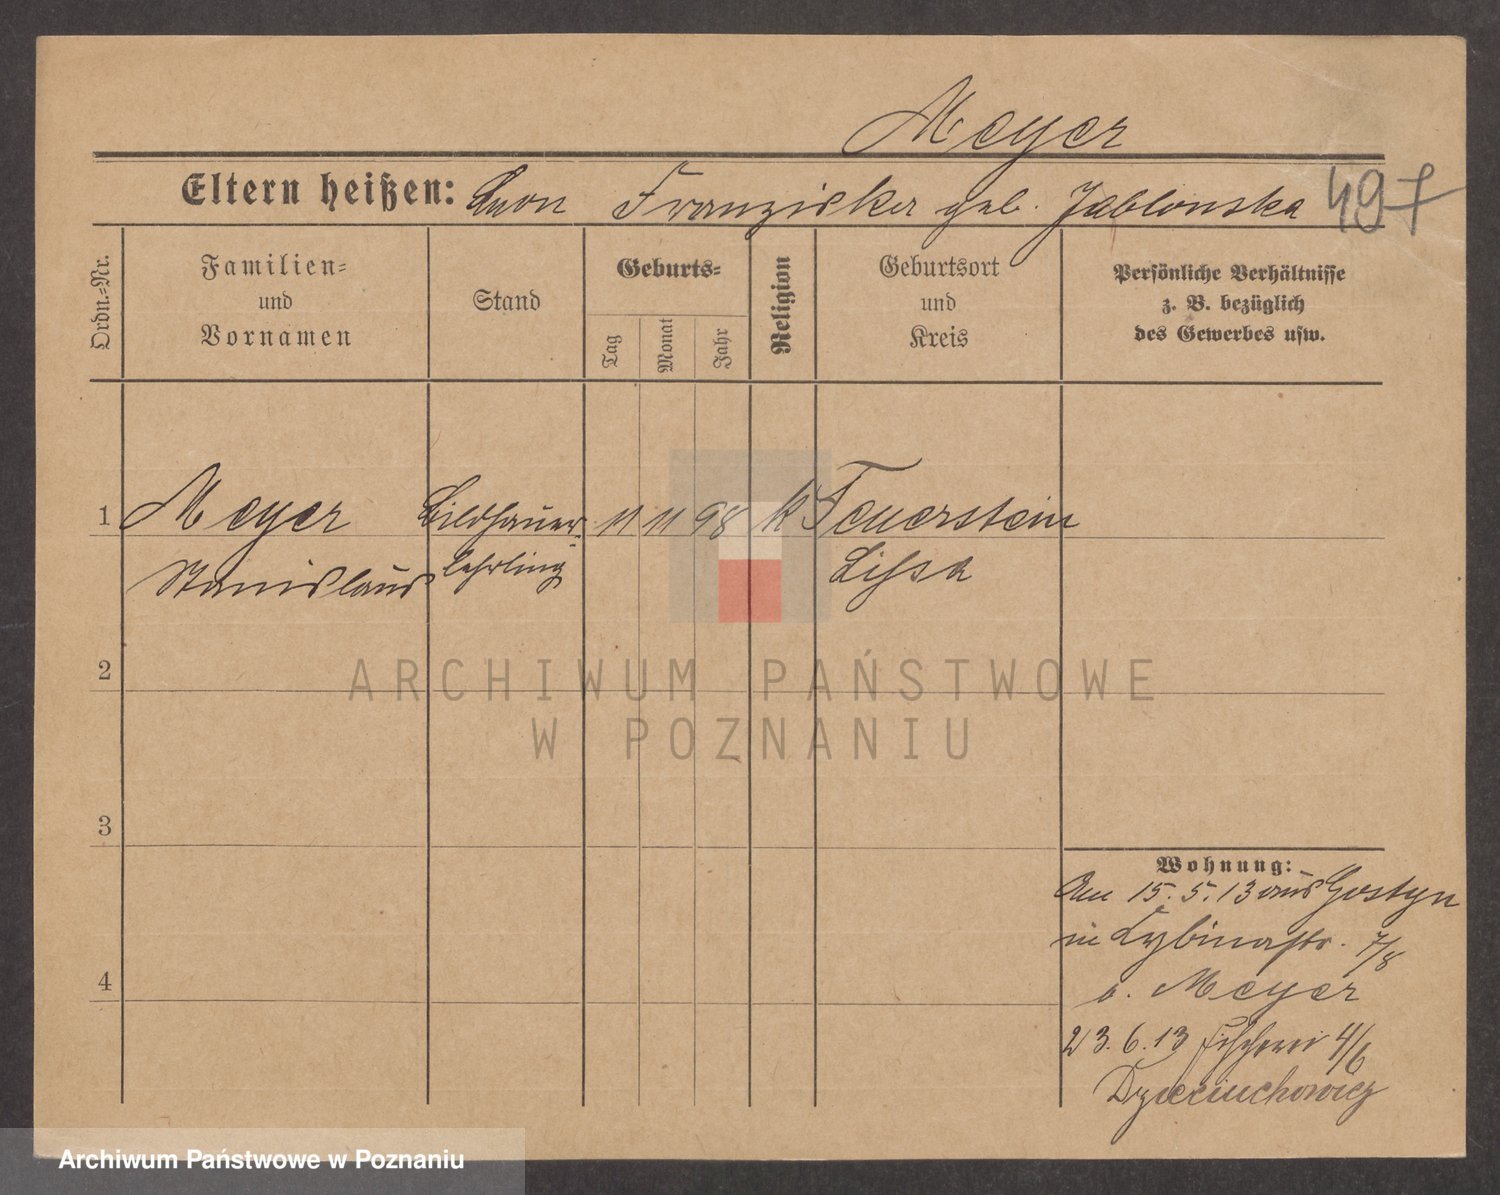 Meyer
Eltern heißen: Leon Franziska geb. Jablonska 497
Ordn.=Nr.
Familien=
und
Vornamen
Stand
Geburts=
Tag
Monat
Jahr
Religion
Geburtsort
und
Kreis
Persönliche Verhältnisse
z. B. bezüglich
des Gewerbes usw.
1 Meyer Bildhauer= 11 11 98 K Feuerstein
Stanislaus Lehrling Lissa
2
3
4
Wohnung:
Am 15.5.13 aus Gostyn
in Cybinastr. 7/8
b. Meyer
23.6.13 Fischerei 4/6
ARCHIWUM PAŃSTWOWE
W POZNANIU
Archiwum Państwowe w Poznaniu